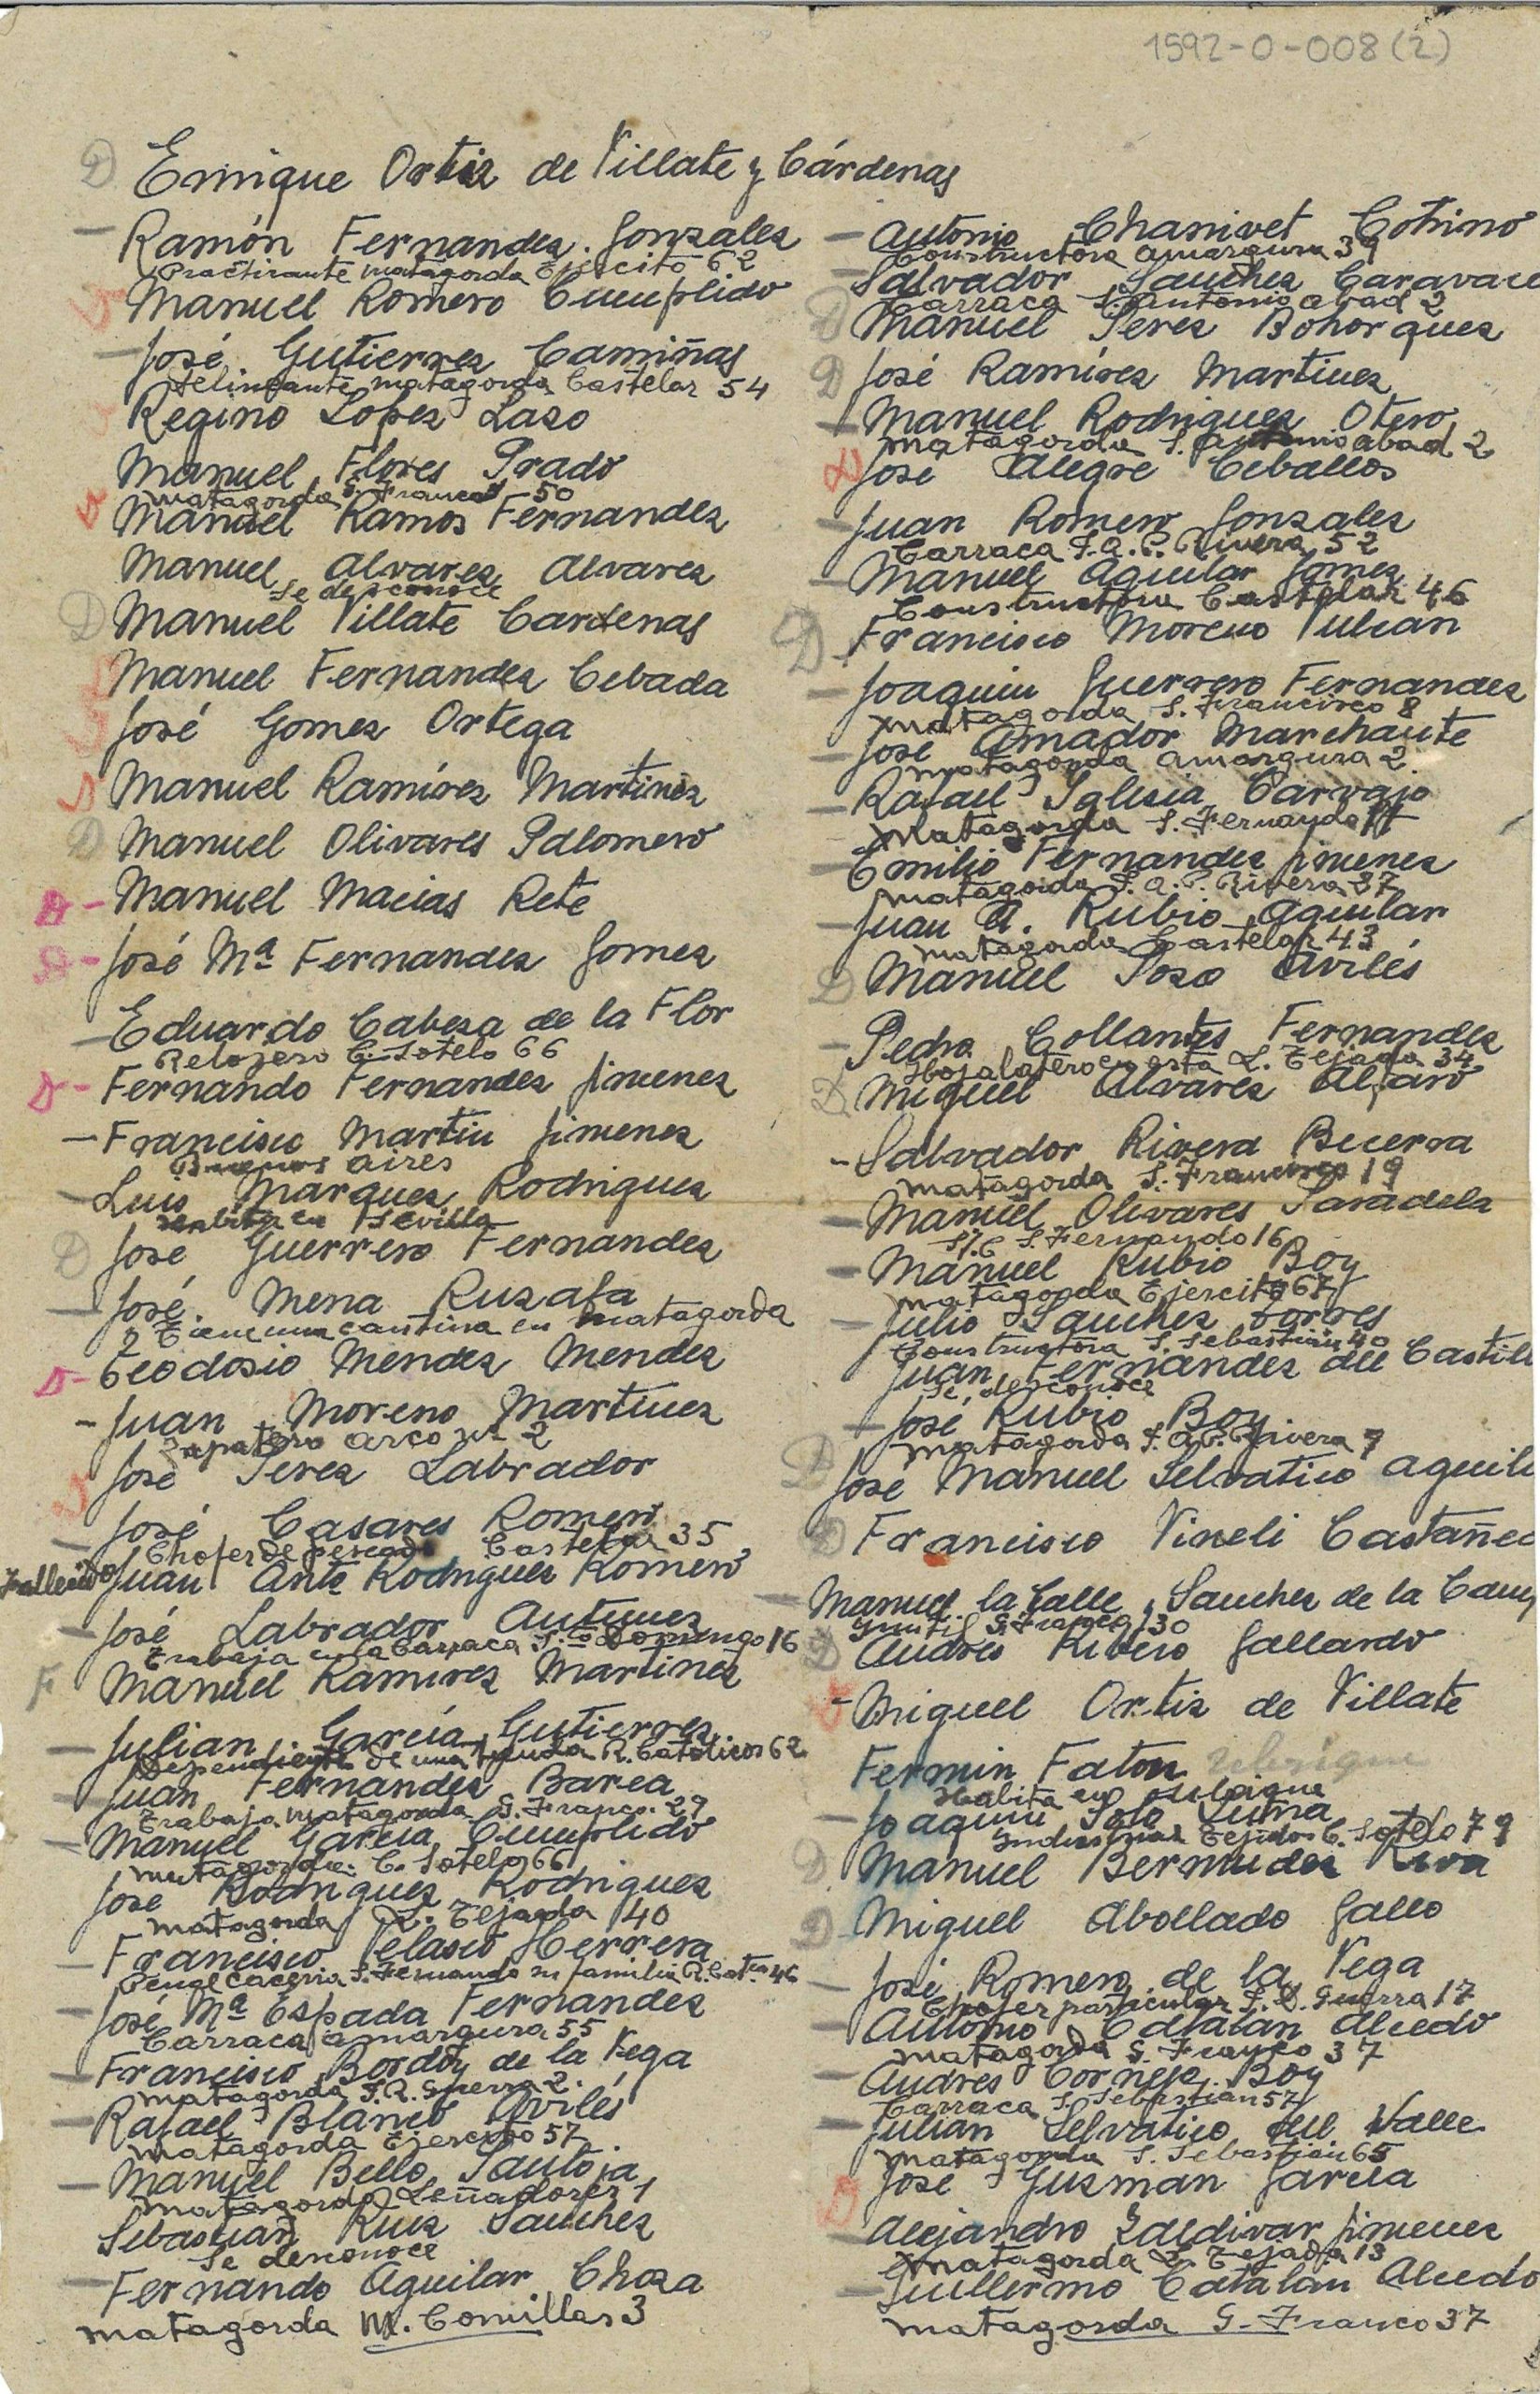 1592-0-008 (2)
D Enrique Ortiz de Villate y Cárdenas
- Ramón Fernandez Gonzalez
Practicante matagorda Ejercito 62
Manuel Romero Cumplido
- José Gutierrez Camiñas
delineante matagorda Castelar 54
Regino Lopez Lazo
Manuel Flores Prado
matagorda G. Franco 50
Manuel Ramos Fernandez
Manuel Alvarez Alvarez
se desconoce
D Manuel Villate Cardenas
Manuel Fernandez Cebada
José Gomez Ortega
Manuel Ramírez Martinez
D Manuel Olivares Palomero
D - Manuel Macias Rete
D - José Mª Fernandez Gomez
- Eduardo Cabeza de la Flor
Relojero C. Sotelo 66
D - Fernando Fernandez Jimenez
- Francisco Martin Jimenez
Buenos aires
- Luis Marquez Rodriguez
Habita en Sevilla
D José Guerrero Fernandez
- José Mena Ruzafa
Tiene una cantina en matagorda
D - Teodosio Mendez Mendez
- Juan Moreno Martinez
Zapatero arco nº 2
José Perez Labrador
- José Casares Romero
Chofer de pescado Castelar 35
Fallecido Juan Antº Rodriguez Romero
- José Labrador Antunez
Trabaja en la Carraca Sto Domingo 16
F Manuel Ramirez Martinez
- Julian García Gutierrez
Dependiente de una tienda R. Catolicos 62
- Juan Fernandez Barea
Trabaja matagorda G. Franco. 29
- Manuel Garcia Cumplido
matagorda. C. Sotelo 66
José Rodriguez Rodriguez
matagorda R. Tejada 40
- Francisco Velasco Herrera
S. Fernando su familia R. Catcos 46
- José Mª Espada Fernandez
Carraca amargura 55
- Francisco Bordoy de la Vega
matagorda Guerra 2.
- Rafael Blanco Avilés
matagorda Ejercito 57
- Manuel Bello Pantoja
matagorda Leñadores 1
Sebastian Ruiz Sanchez
se desconoce
- Fernando Aguilar Choza
matagorda M. Comillas 3
- Antonio Chanivet Cotrino
Constructora amargura 39
- Salvador Sanchez Caravace
Carraca S. antonio abad 2
D Manuel Perez Bohorquez
D José Ramírez Martinez
- Manuel Rodriguez Otero
matagorda S. antonio abad 2
José Alegre Ceballos
- Juan Romero Gonzalez
Carraca J.A.P. Rivera 52
- Manuel Aguilar Gomez
Constructora Castelar 46
D Francisco Moreno Vulian
- Joaquin Guerrero Fernandez
matagorda S. Francisco 8
- José Amador Marchante
matagorda amargura 2
- Rafael Iglesia Carvajo
matagorda S. Fernando 17
- Emilio Fernandez Jimenez
matagorda J.A.P. Rivera 37
- Juan A. Rubio Aguilar
matagorda Castelar 43
D Manuel Pozo Avilés
- Pedro Collantes Fernandez
Hojalatero cuesta L. Tejada 34
D Miguel Alvarez Alfaro
- Salvador Rivera Becerra
matagorda S. Francisco 19
- Manuel Olivares Paradela
S/C S. Fernando 16
- Manuel Rubio Boy
matagorda Ejercito 67
- Julio Sanchez Torres
Constructora S. Sebastian 40
Juan Fernandez del Castill
se desconoce
- José Rubio Boy
matagorda J.A.P. Rivera 7
D José Manuel Selvatico aguila
D Francisco Vineli Castañed
- Manuel la Calle Sanchez de la Camp
G. Franco 130
D Andrés Rivero Gallardo
- Miguel Ortiz de Villate
Fermin Faton
Habita en
- Joaquin Soto Luma
Industrial Tejidos C. Sotelo 79
D Manuel Bermudez Riva
D Miguel Abollado Gallo
- José Romero de la Vega
Chofer particular Guerra 17
- Antonio Catalan Alcedo
matagorda G. Franco 37
- Andres Cornejo Boy
Carraca S. Sebastian 57
- Julian Selvatico del Valle
matagorda S. Sebastian 65
José Guzman Garcia
- Alejandro Zaldivar Jimenez
matagorda L. Tejada 13
- Guillermo Catalan Alcedo
matagorda G. Franco 37